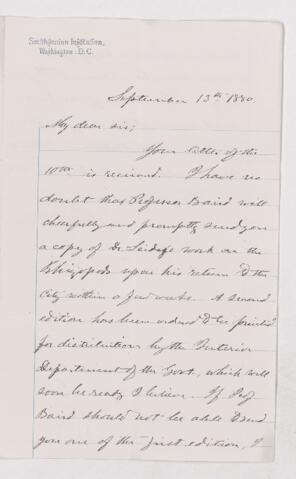 Smithsonian Institution,
Washington. D.C.
September 13th 1880.
My dear sir;
Your letter of the
10th is received. I have no
doubt that Professor Baird will
cheerfully and promptly send you
a copy of Dr Leidy's work on the
Rhizopods upon his return to the
City within a few weeks. A second
edition has been ordered to be printed
for distribution by the Interior
Department of the Govt. which will
soon be ready I believe. If Prof
Baird should not be able to send
you one of the first edition, I